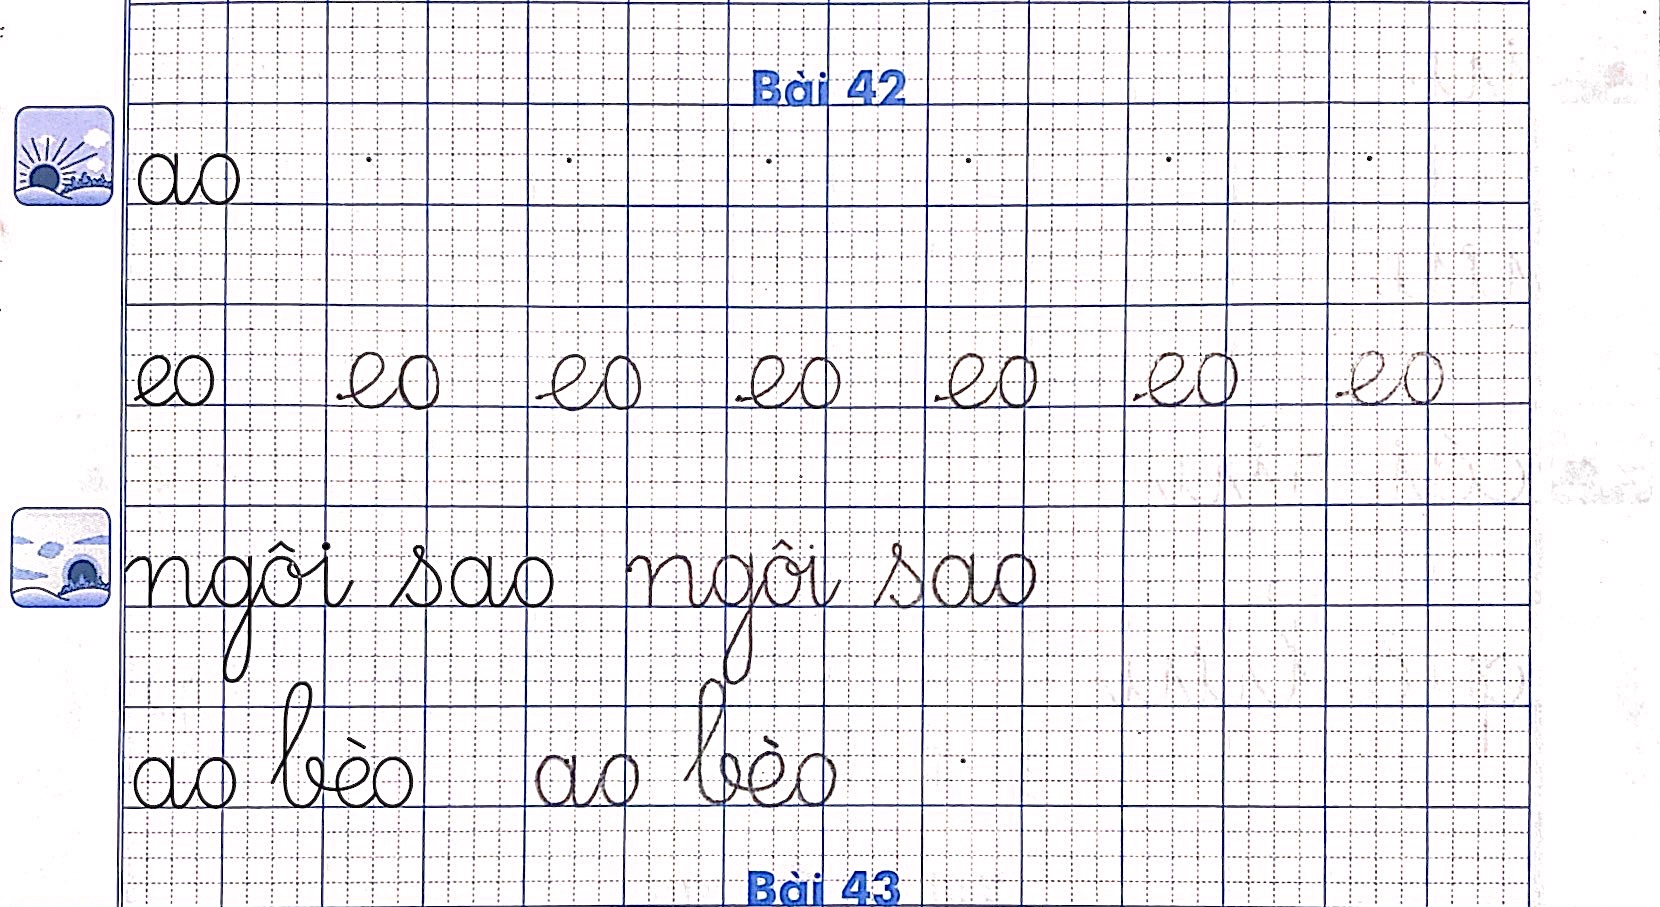 Bài 42
ao
eo eo eo eo eo eo eo
ngôi sao ngôi sao
ao bèo ao bèo
Bài 43